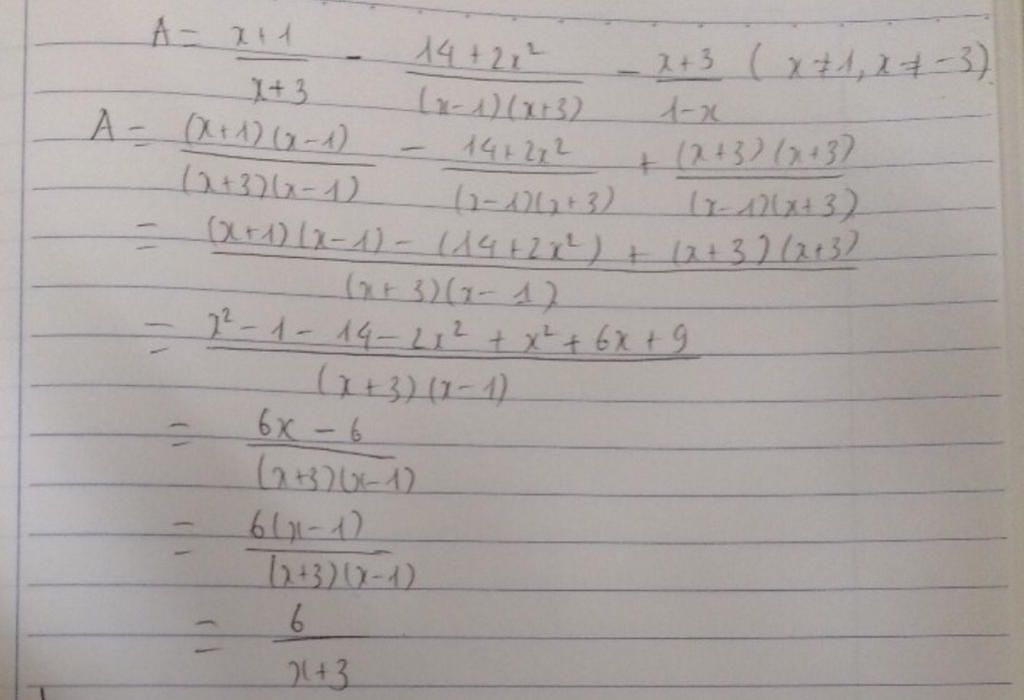 A = \frac{x+1}{x+3} - \frac{14+2x^2}{(x-1)(x+3)} - \frac{x+3}{1-x} ( x ≠ 1, x ≠ -3)
A = \frac{(x+1)(x-1)}{(x+3)(x-1)} - \frac{14+2x^2}{(x-1)(x+3)} + \frac{(x+3)(x+3)}{(x-1)(x+3)}
= \frac{(x+1)(x-1) - (14+2x^2) + (x+3)(x+3)}{(x+3)(x-1)}
= \frac{x^2 - 1 - 14 - 2x^2 + x^2 + 6x + 9}{(x+3)(x-1)}
= \frac{6x - 6}{(x+3)(x-1)}
= \frac{6(x-1)}{(x+3)(x-1)}
= \frac{6}{x+3}